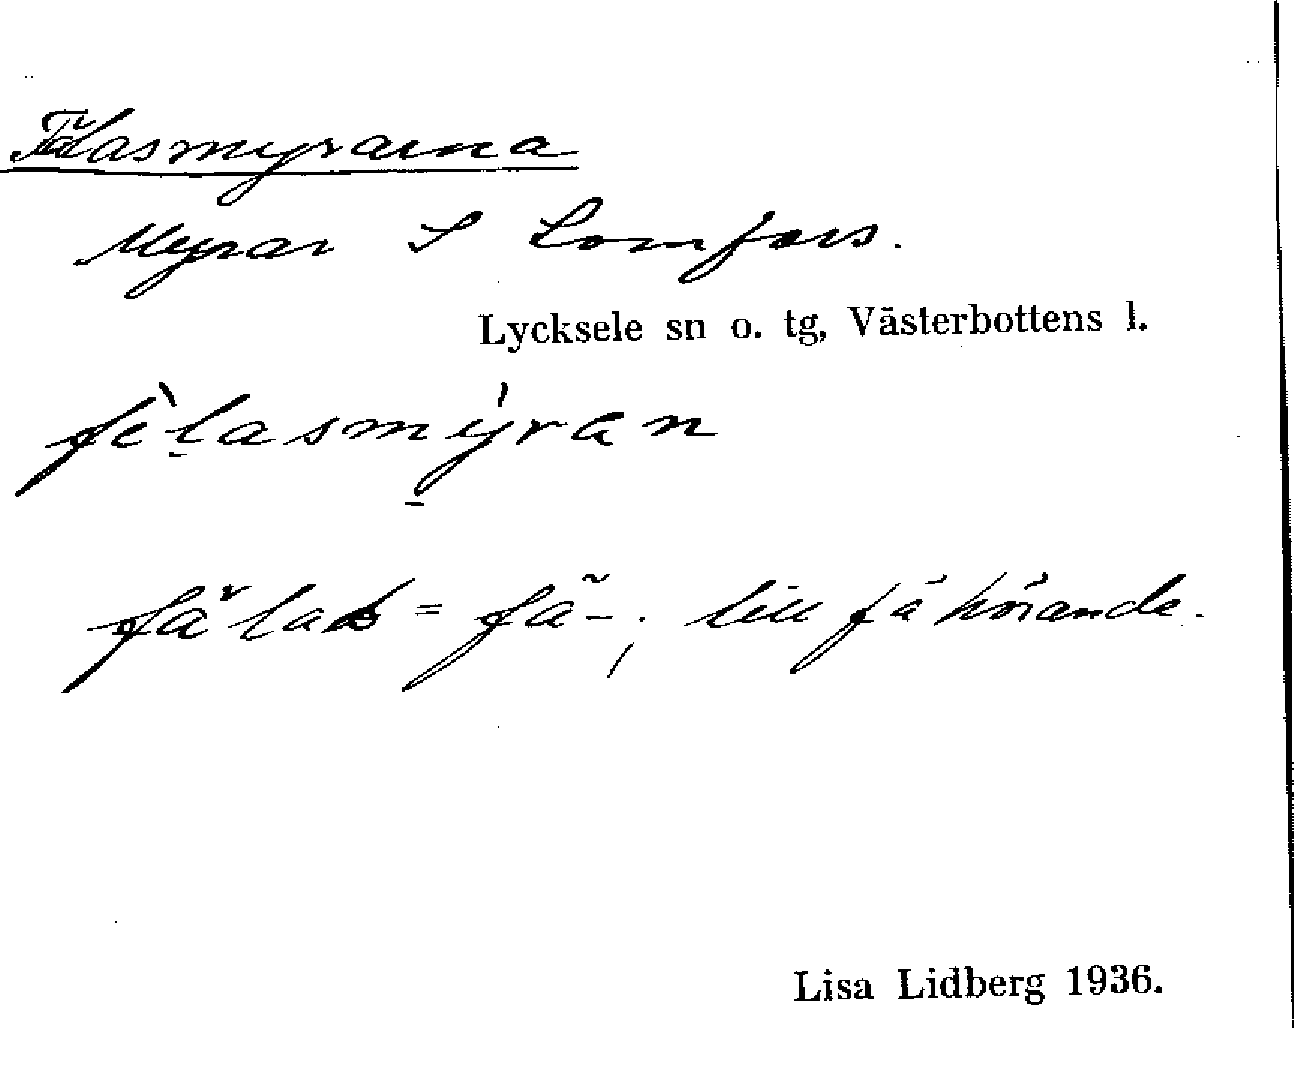 Fälasmyrarna
Myrar S Lomfors.
Lycksele sn o. tg, Västerbottens l.
fè̀lasmýran
fälas = fä-; till fä hörande.
Lisa Lidberg 1936.